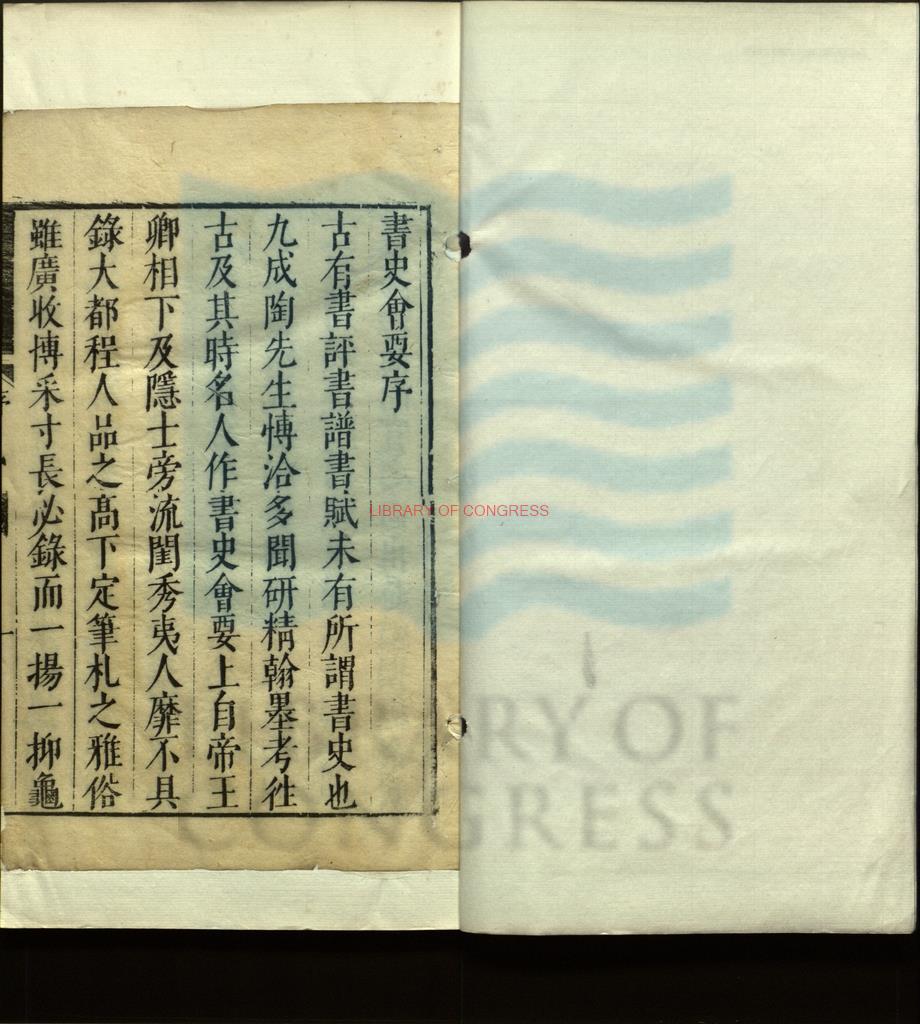 書史會要序
古有書評書譜書賦未有所謂書史也
九成陶先生愽洽多聞研精翰墨考徃
古及其時名人作書史會要上自帝王
卿相下及隱士旁流閨秀夷人靡不具
錄大都程人品之髙下定筆札之雅俗
雖廣收博采寸長必錄而一揚一抑龜
序
一
LIBRARY OF CONGRESS
LIBRARY OF
CONGRESS